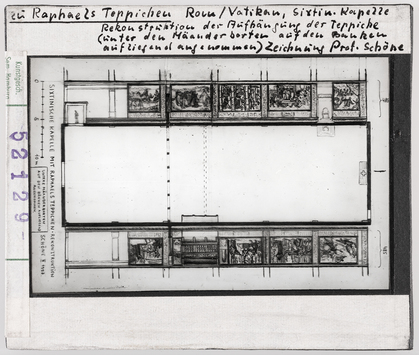 zu Raphaels Teppichen Rom/Vatikan, Sixtin. Kapelle
Rekonstruktion der Aufhängung der Teppiche
(unter den Mäanderborten auf den Bänken
aufliegend angenommen) Zeichnung Prof. Schöne
Kunstgesch.
Sem. Hamburg
52129
SIXTINISCHE KAPELLE MIT RAPHAELS TEPPICHEN · REKONSTRUKTION